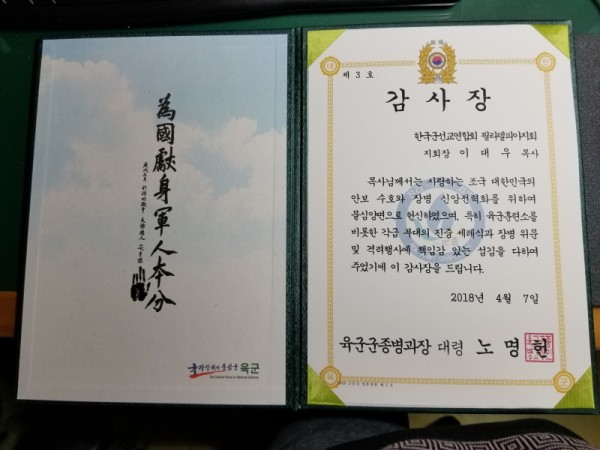 為國獻身軍人本分
국가방위의 중심군 육군
제 3 호
감사장
한국군선교연합회 필라델피아지회
지회장 이 대 우 목사
목사님께서는 사랑하는 조국 대한민국의
안보 수호와 장병 신앙전력화를 위하여
물심양면으로 헌신하였으며, 특히 육군훈련소를
비롯한 각급 부대의 진중 세례식과 장병 위문
및 격려행사에 책임감 있는 섬김을 다하여
주었기에 이 감사장을 드립니다.
2018년 4월 7일
육군군종병과장 대령 노 명 헌